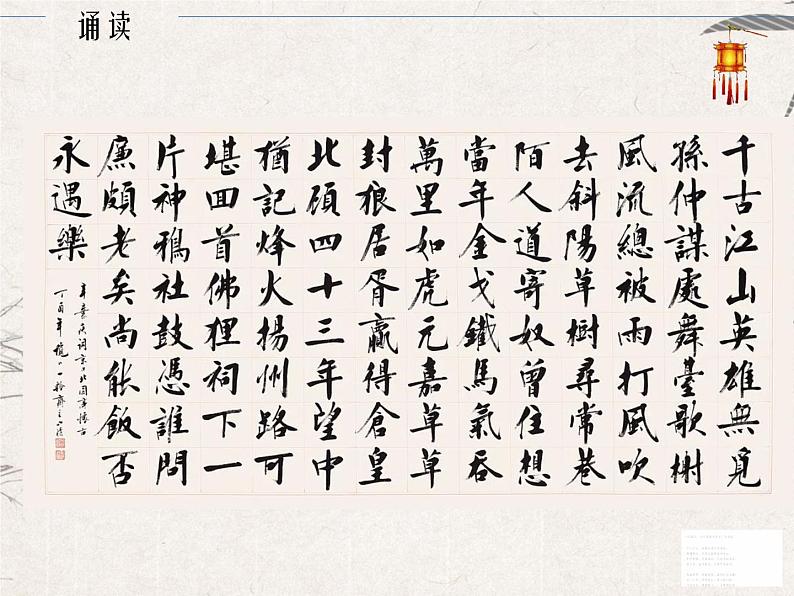 诵读
千古江山英雄無覓
孫仲謀處舞臺歌榭
風流總被雨打風吹
去斜陽草樹尋常巷
陌人道寄奴曾住想
當年金戈鐵馬氣吞
萬里如虎元嘉草草
封狼居胥贏得倉皇
北顧四十三年望中
猶記烽火揚州路可
堪回首佛狸祠下一
片神鴉社鼓憑誰問
廉頗老矣尚能飯否
永遇樂
辛棄疾詞京口北固亭懷古
丁酉年